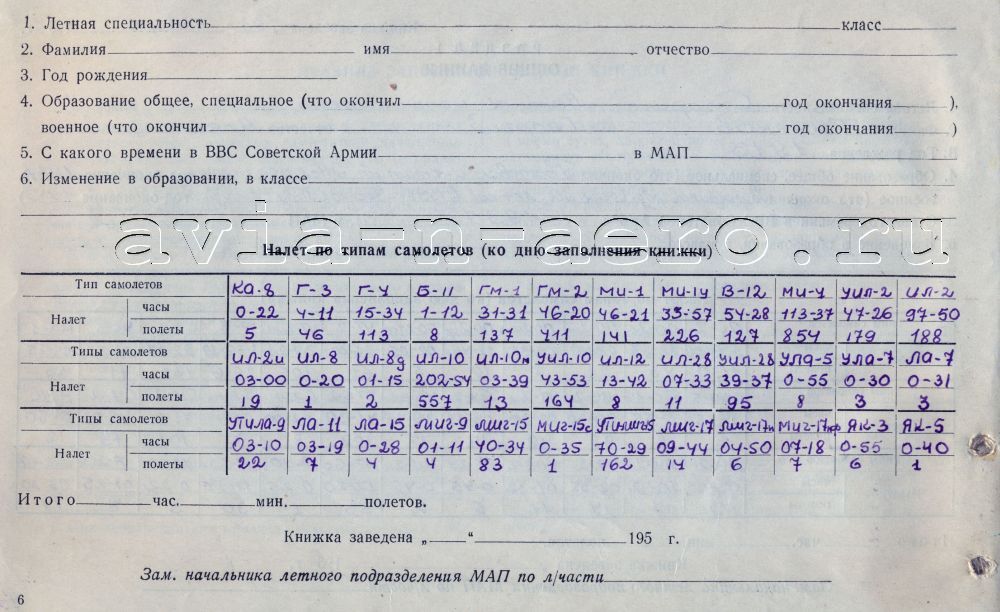 1. Летная специальность класс
2. Фамилия имя отчество
3. Год рождения
4. Образование общее, специальное (что окончил год окончания ),
военное (что окончил год окончания )
5. С какого времени в ВВС Советской Армии в МАП
6. Изменение в образовании, в классе
avia-n-aero.ru
Налет по типам самолетов (ко дню заполнения книжки)
Тип самолетов Ка-8 Г-3 Г-4 Б-11 ГМ-1 ГМ-2 Ми-1 Ми-1у В-12 Ми-4 Уил-2 Ил-2
Налет часы 0-22 4-11 15-34 1-12 31-31 46-20 46-21 33-57 54-28 113-37 47-26 97-50
полеты 5 46 113 8 137 411 141 226 127 854 179 188
Типы самолетов Ил-2и Ил-8 Ил-8д Ил-10 Ил-10м Уил-10 Ил-12 Ил-28 Уил-28 Ула-5 Ула-7 Ла-7
Налет часы 03-00 0-20 01-15 202-54 03-39 43-53 13-42 07-33 39-37 0-55 0-30 0-31
полеты 19 1 2 557 13 164 8 11 95 8 3 3
Типы самолетов УТИЛа-9 Ла-11 Ла-15 Миг-9 Миг-15 Миг-15с Миг-17 Миг-17п Миг-17пф Як-3 Як-5
Налет часы 03-10 03-19 0-28 01-11 40-34 0-35 70-29 09-44 04-50 07-18 0-55 0-40
полеты 22 7 4 4 83 1 162 14 6 7 6 1
Итого час. мин. полетов.
Книжка заведена „ “ 195 г.
Зам. начальника летного подразделения МАП по л/части
6